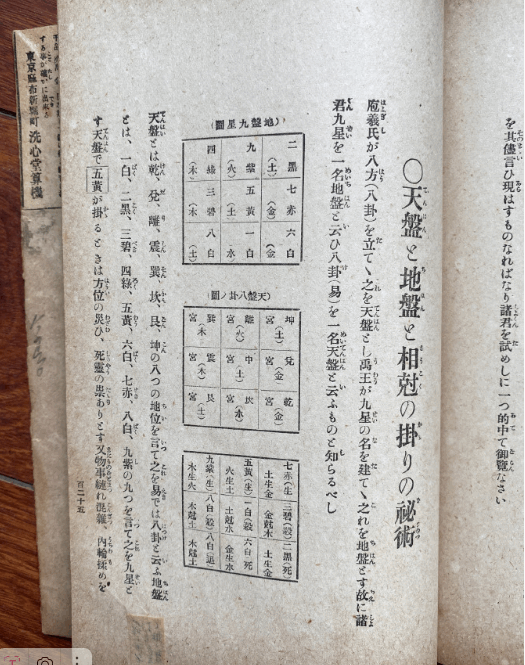 を其儘言ひ現はすものなればなり諸君を試めしに一つ的中て御覽なさい
〇天盤と地盤と相尅の掛りの祕術
庖羲氏が八方(八卦)を立て丶之を天盤とし禹王が九星の名を建て丶之れを地盤とす故に諸
君九星を一名地盤と云ひ八卦(易)を一名天盤と云ふものと知らるべし
(地盤九星圖)
二黒(土) 七赤(金) 六白(金)
九紫(火) 五黄(土) 一白(水)
四綠(木) 三碧(木) 八白(土)
(天盤八卦ノ圖)
坤宮(土) 兌宮(金) 乾宮(金)
離宮(火) 中(土)
巽宮(木) 震宮(木) 艮宮(土)
七赤(生) 三碧(殺) 二黒(死)
土生金 金尅木 土生金
五黄(生) 一白(殺) 六白(死)
火生土 土尅水 金生水
九紫(生) 八白(殺) 八白
木生火 木尅土 木尅土
天盤とは乾、兌、離、震、巽、坎、艮、坤の八つの地位を言て之を易では八卦と云ふ地盤
とは、一白、二黒、三碧、四綠、五黄、六白、七赤、八白、九紫の九つを言て之を九星と
す天盤で五黄が掛るときは方位の災ひ、死靈の祟ありとす又物事縺れ混雜、內輪揉めを
百二十五
東京麻布新堀町 洗心堂算機